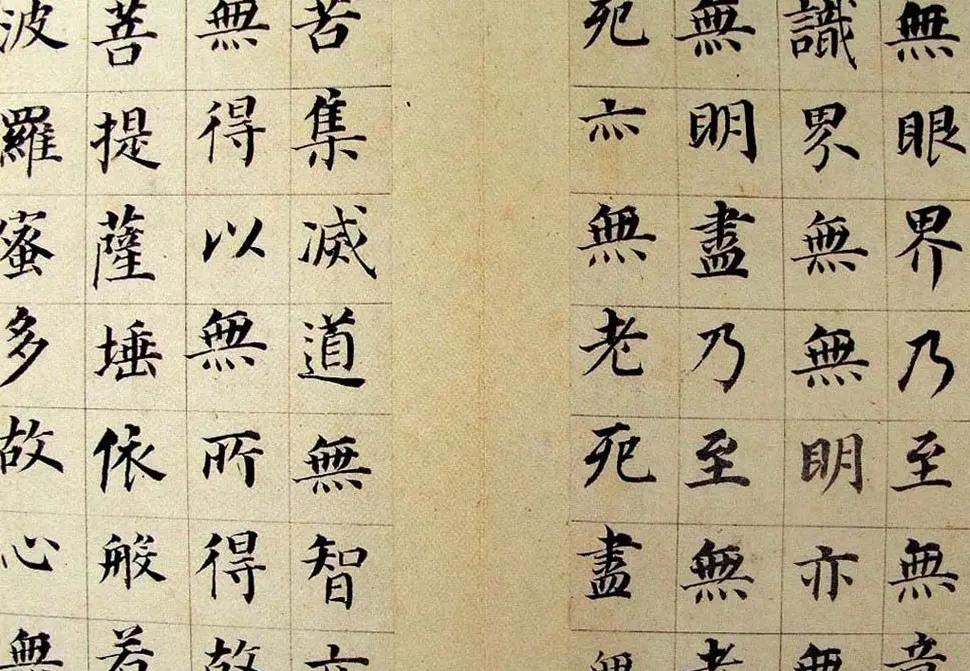 無眼界乃至無意
識界無無明亦無
無明盡乃至無老
死亦無老死盡無
苦集滅道無智亦
無得以無所得故
菩提薩埵依般若
波羅蜜多故心無